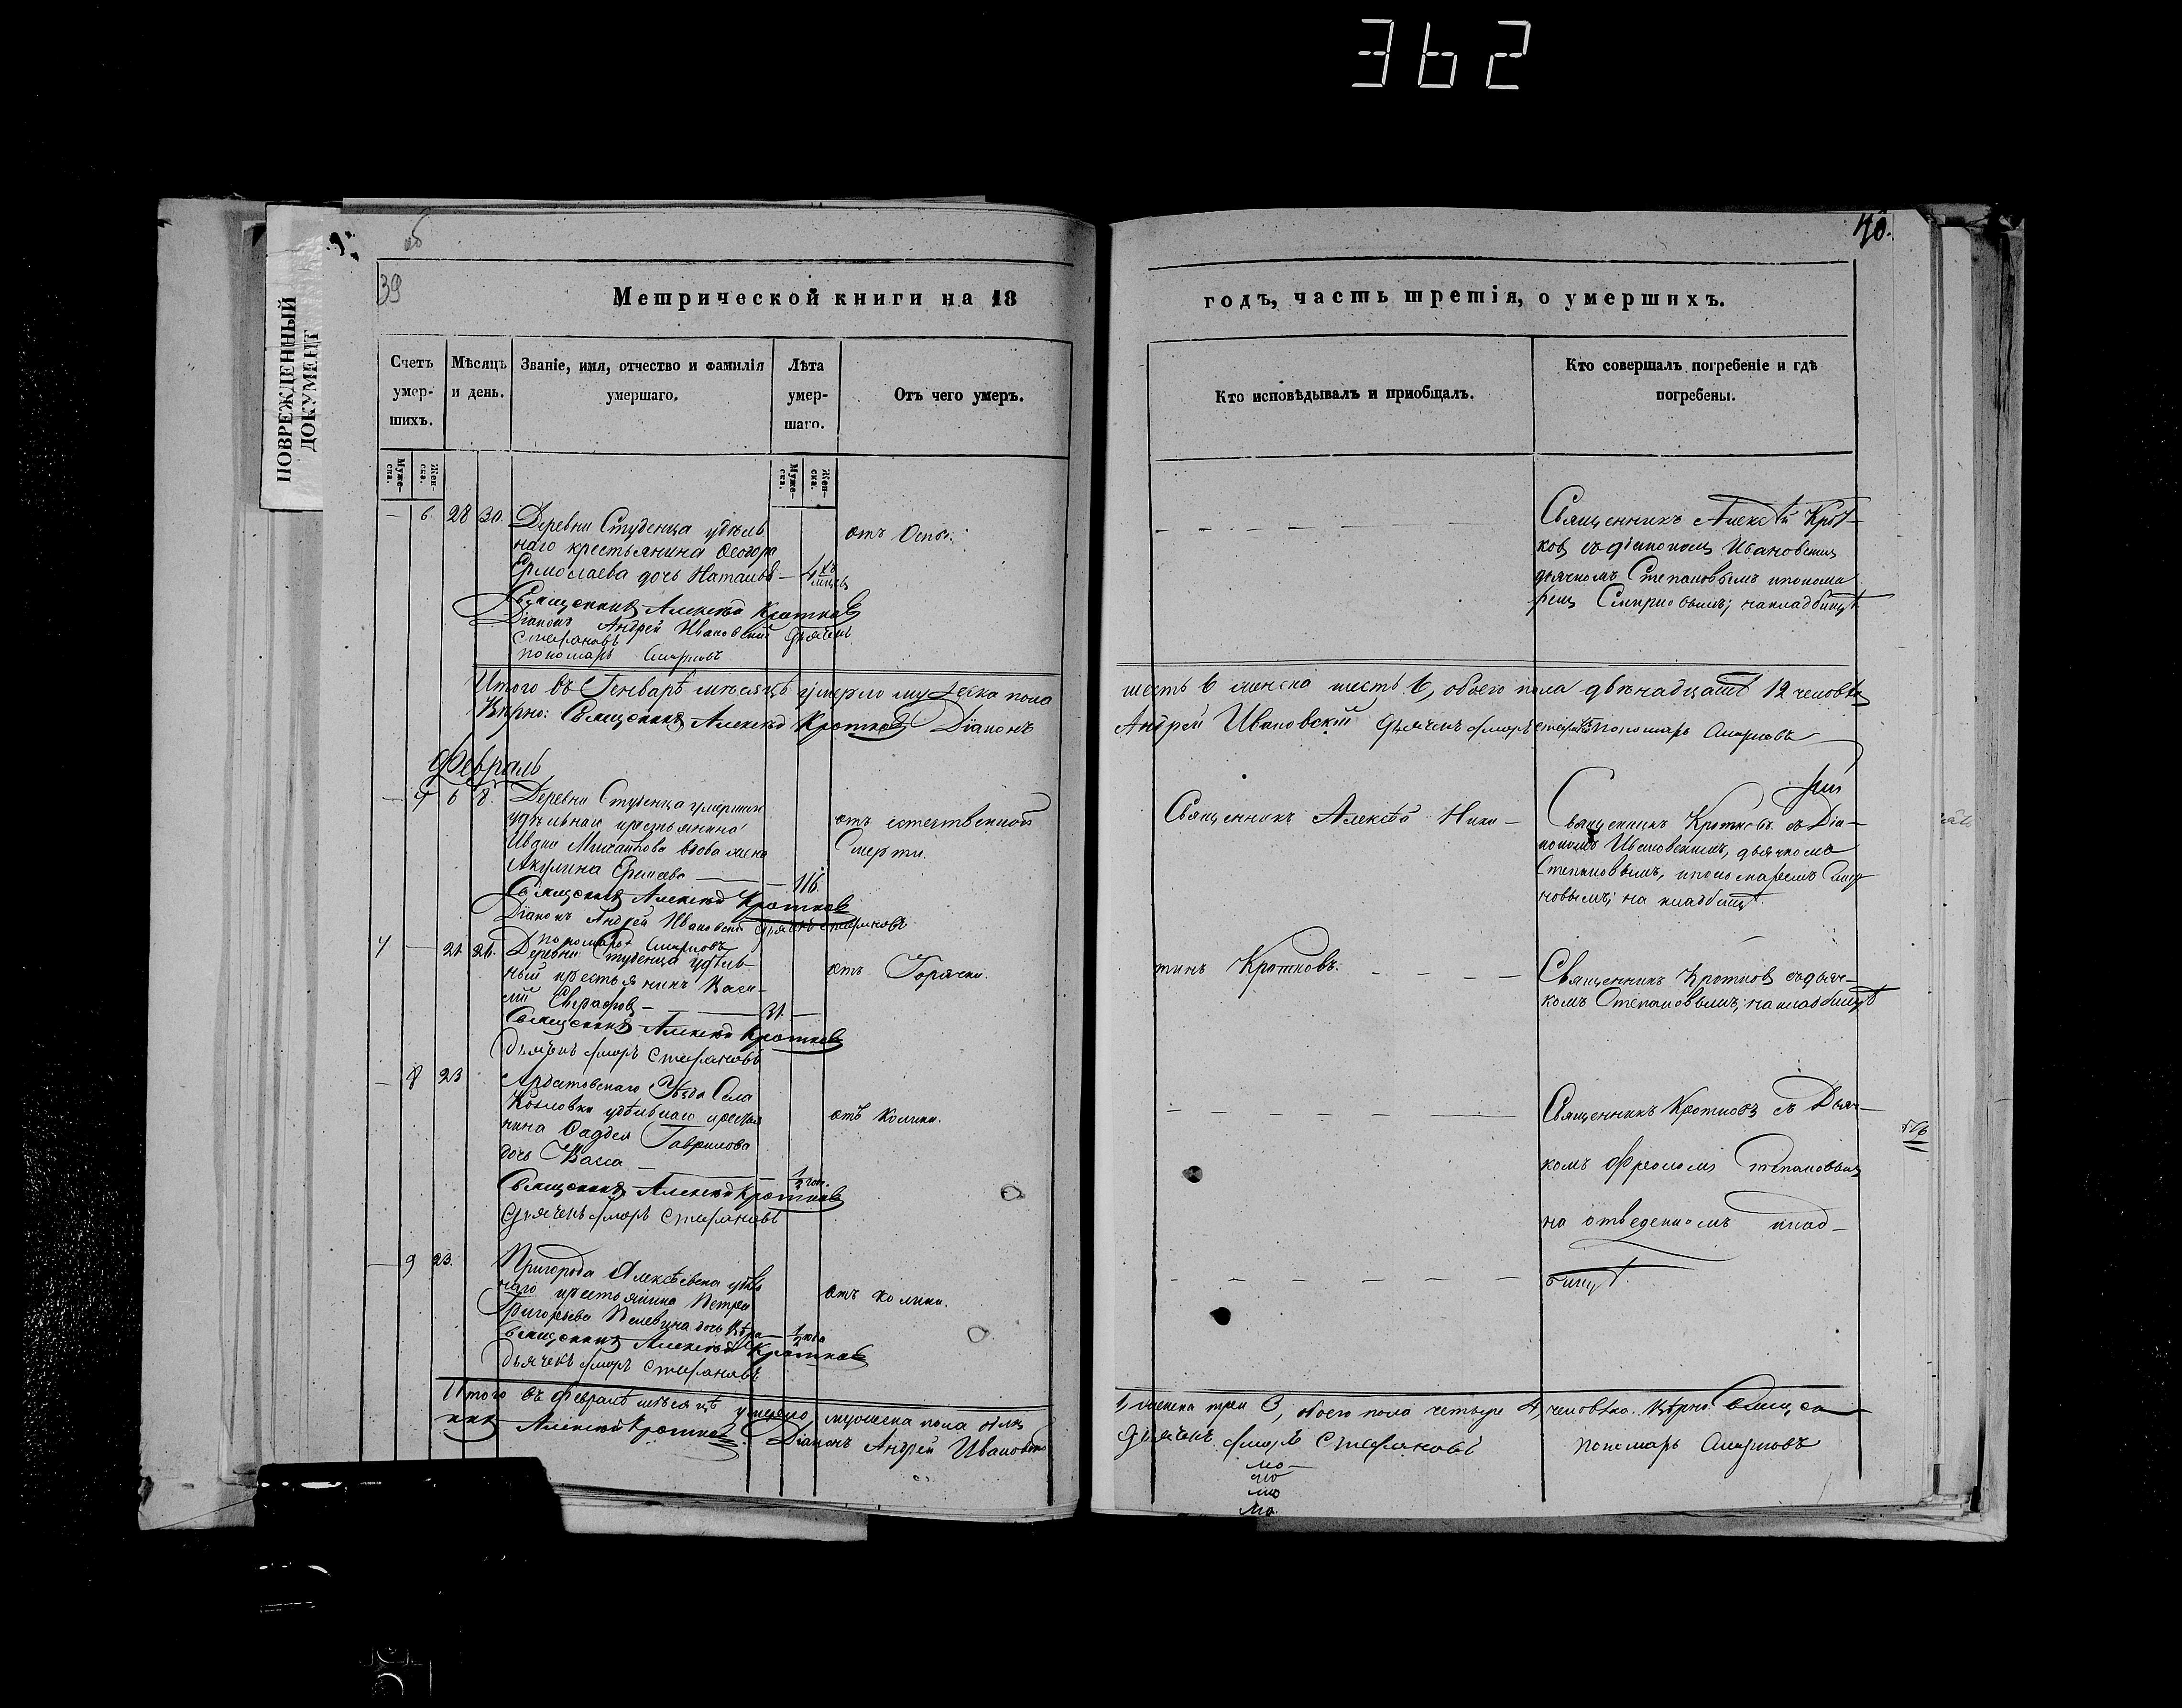 362
ПОВРЕЖДЕННЫЙ
ДОКУМЕНТ
об
39
Метрической книги на 18
Счетъ умер- шихъ.
Мѣсяцъ и день.
Званіе, имя, отчество и фамилія умершаго.
Лѣта умер- шаго.
Отъ чего умеръ.
Муже- ска.
Жен- ска.
Муже- ска.
Жен- ска.
6. 28 30. Деревни Студенца удѣль
наго крестьянина Ѳеодора
отъ Оспы.
Ермолаева дочь Наталья
Священникъ Алексѣй Кротковъ
Діаконъ Андрей Ивановскій дьячекъ
Степановъ
пономарь Смирновъ
Итого въ Генварѣ мѣсяцѣ умерло мужеска пола
Вѣрно: Священникъ Алексѣй Кротковъ Діаконъ
Февраль
6 8. Деревни Студенца умершаго
удѣльнаго крестьянина
отъ естественной
Ивана Михайлова вдова жена
Смерти.
Акулина
116.
Священникъ Алексѣй Кротковъ
Діаконъ Андрей Ивановскій дьячекъ Степановъ
пономарь Смирновъ
21. Деревни Студенца удѣль-
ный крестьянинъ Васи-
отъ Горячки.
лій Евграфовъ 31.
Священникъ Алексѣй Кротковъ
дьячекъ Степановъ
8 23 Ардатовскаго Уѣзда Села
Козловки удѣльнаго крестья
отъ колики.
нина Фаддея Гаврилова
дочь Васса
Священникъ Алексѣй Кротковъ
дьячекъ Степановъ
9 23. Пригорода Алексѣевска удѣль
наго крестьянина Петра
отъ колики.
Григорьева дочь Вѣра
Священникъ Алексѣй Кротковъ
дьячекъ Степановъ
Итого въ Февралѣ мѣсяцѣ умерло мужеска пола одинъ
Алексѣй Кротковъ. Діаконъ Андрей Ивановскій
40.
годъ, часть третія, о умершихъ.
Кто исповѣдывалъ и приобщалъ.
Кто совершалъ погребеніе и гдѣ погребены.
Священникъ Алексѣй Крот-
ковъ съ діакономъ Ивановскимъ
дьячкомъ Степановымъ и понома
ремъ Смирновымъ; на кладбищѣ
шесть 6 женска шесть 6, обоего пола двѣнадцать 12 человѣкъ
Андрей Ивановскій дьячекъ пономарь Смирновъ
Священникъ Алексѣй Ники-
Священникъ Кротковъ съ Діа-
кономъ Ивановскимъ, дьячкомъ
Степановымъ, и пономаремъ Смир
новымъ; на кладбищѣ.
тинъ Кротковъ.
Священникъ Кротковъ съ дьяч-
комъ Степановымъ; на кладбищѣ
Священникъ Кротковъ съ Дьяч-
комъ Степановымъ
на отведенномъ клад-
бищѣ.
1, женска три 3, обоего пола четыре 4, человѣка. Вѣрно: Священ
дьячекъ Степановъ пономарь Смирновъ